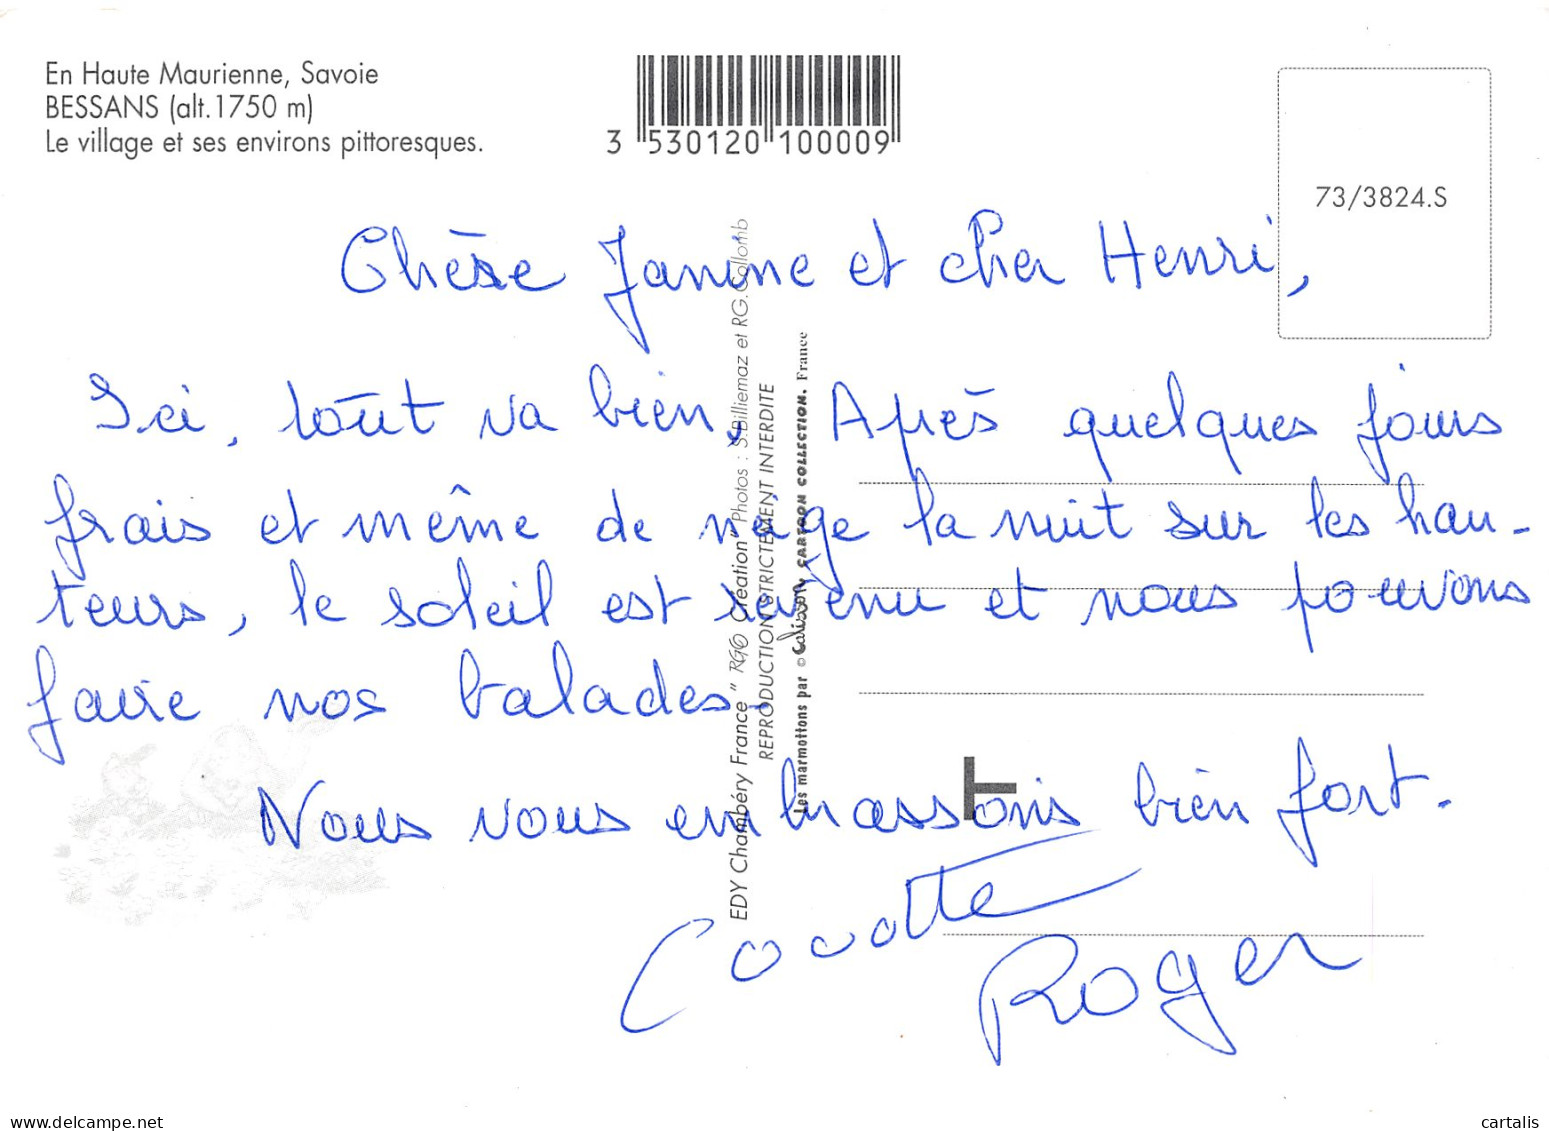 En Haute Maurienne, Savoie
BESSANS (alt.1750 m)
Le village et ses environs pittoresques.
3 530120 100009
73/3824.S
Chère Janine et cher Henri,
Ici, tout va bien. Après quelques jours
frais et même de neige la nuit sur les hau-
teurs, le soleil est revenu et nous pouvons
faire nos balades.
Nous vous embrassons bien fort.
Roger
EDY Chambéry France " RGC Création" Photos : S.Billiemaz et RG.Collomb
REPRODUCTION STRICTEMENT INTERDITE
Les marmottons par © Calisson, CARTOON COLLECTION. France
www.delcampe.net
cartalis